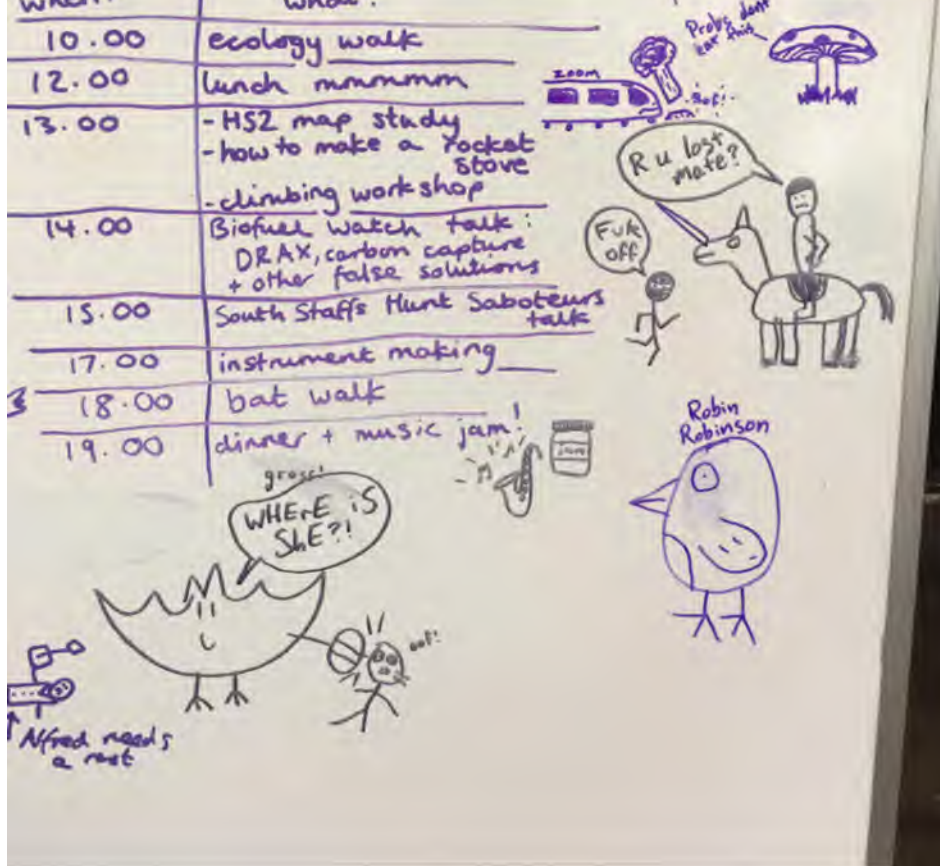 10.00 ecology walk
12.00 lunch mmmmm
13.00 - HS2 map study
- how to make a rocket
stove
- climbing workshop
14.00 Biofuel Watch talk:
DRAX, carbon capture
+ other false solutions
15.00 South Staffs Hunt Saboteurs
talk
17.00 instrument making
18.00 bat walk
19.00 dinner + music jam!
Probs dont
eat this
zoom
R u lost
mate?
Fuk
off
Robin
Robinson
jam
gross!
WHErE iS
ShE?!
oof!
Alfred needs
a rest